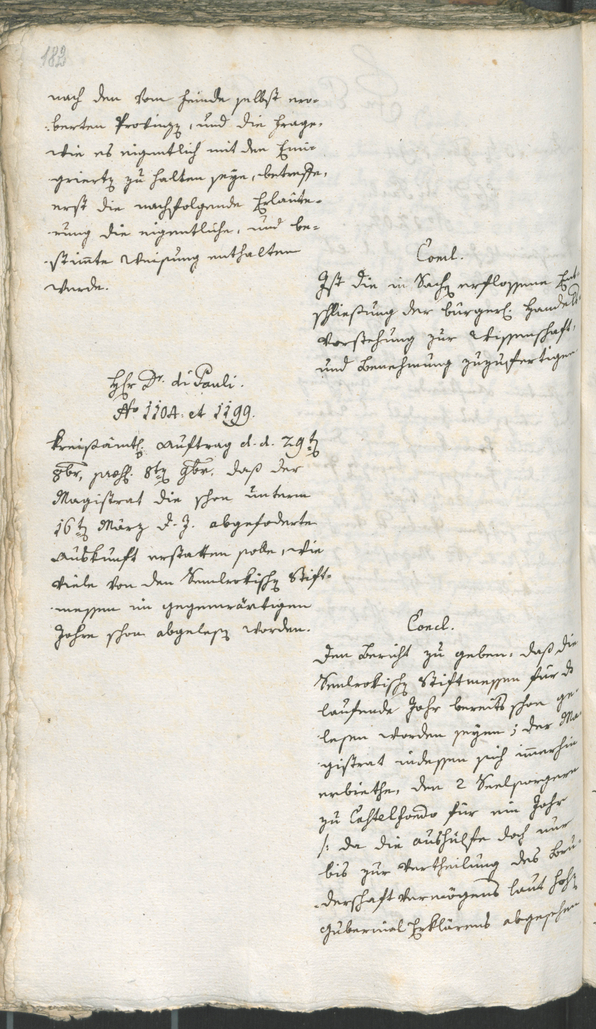 182
nach den vom Feinde selbst ero-
berten Provinzen, und die Frage,
wie es eigentlich mit den Emi-
griertn zu halten seye, betreffe,
erst die nachfolgende Erläute-
rung die eigentliche, und be-
stimte Weisung enthalten
werde.
Concl.
Ist die in Sachn erflossene Ent-
schließung der bürgerl. Handels
Vorstehung zur Wissenschaft,
und Benehmung zuzufertigen
Hr. Dr. di Pauli.
No 1104. et 1199.
Kreisämtl. Auftrag d. d. 29tn
8br, praes. 8tn 9br, daß der
Magistrat die schon unterm
16tn März d. J. abgeforderte
Auskunft erstatten solle, wie
viele von den Semlrokischn Stift-
messen im gegenwärtigen
Jahre schon abgelesn worden.
Concl.
Den Bericht zu geben, daß die
Semlrokischn Stiftmessen für das
laufende Jahr bereits schon ge-
lesen worden seyen; der Ma-
gistrat indessen sich immerhin
erbiethe, den 2 Seelsorgern
zu Castelfondo für ein Jahr
/: da die Aushülfe doch nur
bis zur Vertheilung des Bru-
derschaft Vermögens laut hohn
Gubernial Erklärens abgesehen